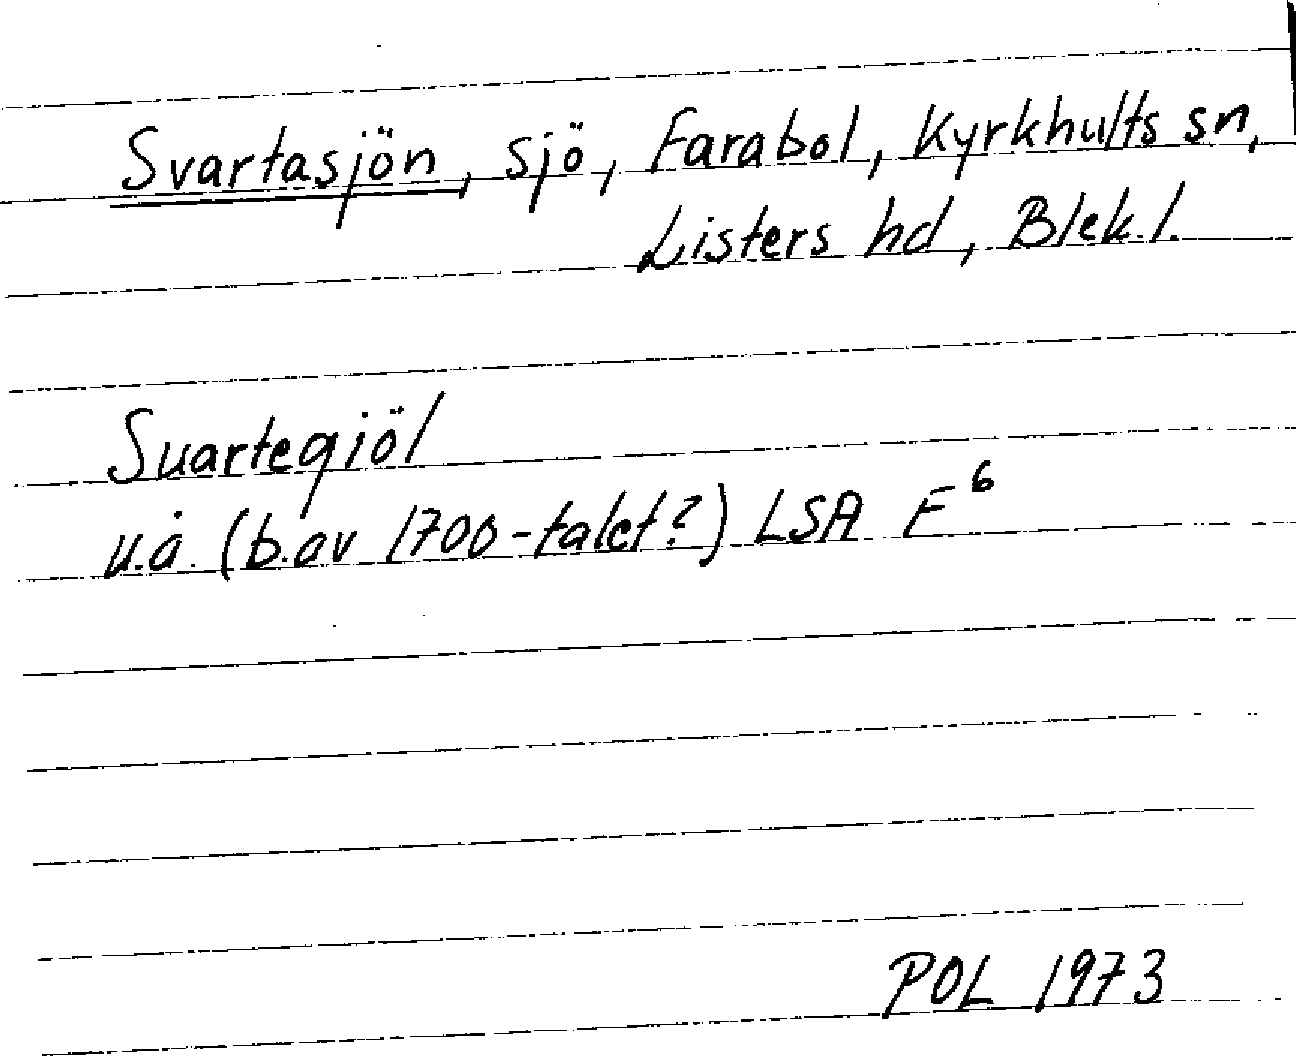 Svartasjön, sjö, Farabol, Kyrkhults sn,
Listers hd, Blek.l.
Suartegiöl
u.å. (b.av 1700-talet?) LSA E⁶
POL 1973